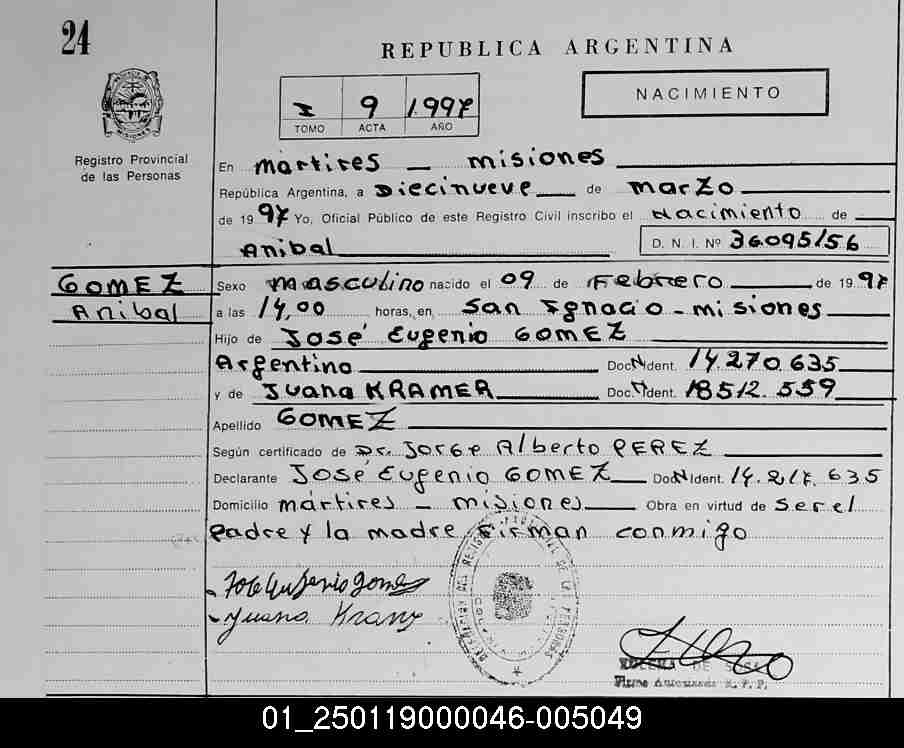 24
REPUBLICA ARGENTINA
I 9 1.997
TOMO ACTA AÑO
NACIMIENTO
Registro Provincial
de las Personas
En martires - misiones
República Argentina, a Diecinueve de marzo
de 1997 Yo, Oficial Público de este Registro Civil inscribo el Nacimiento de
Anibal D. N. I. Nº 36095156
GOMEZ
Anibal
Sexo masculino nacido el 09 de Febrero de 1997
a las 14,00 horas, en San Ignacio - misiones
Hijo de José Eugenio GOMEZ
Argentino Doc. N Ident. 14.270.635
y de Juana KRAMER Doc. N Ident. 18512.559
Apellido GOMEZ
Según certificado de Dr. Jorge Alberto PEREZ
Declarante José Eugenio GOMEZ Doc N Ident. 635
Domicilio mártires - misiones Obra en virtud de ser el
padre y la madre Firman conmigo
Jose Eugenio Gomez
Juana
DE
01_250119000046-005049